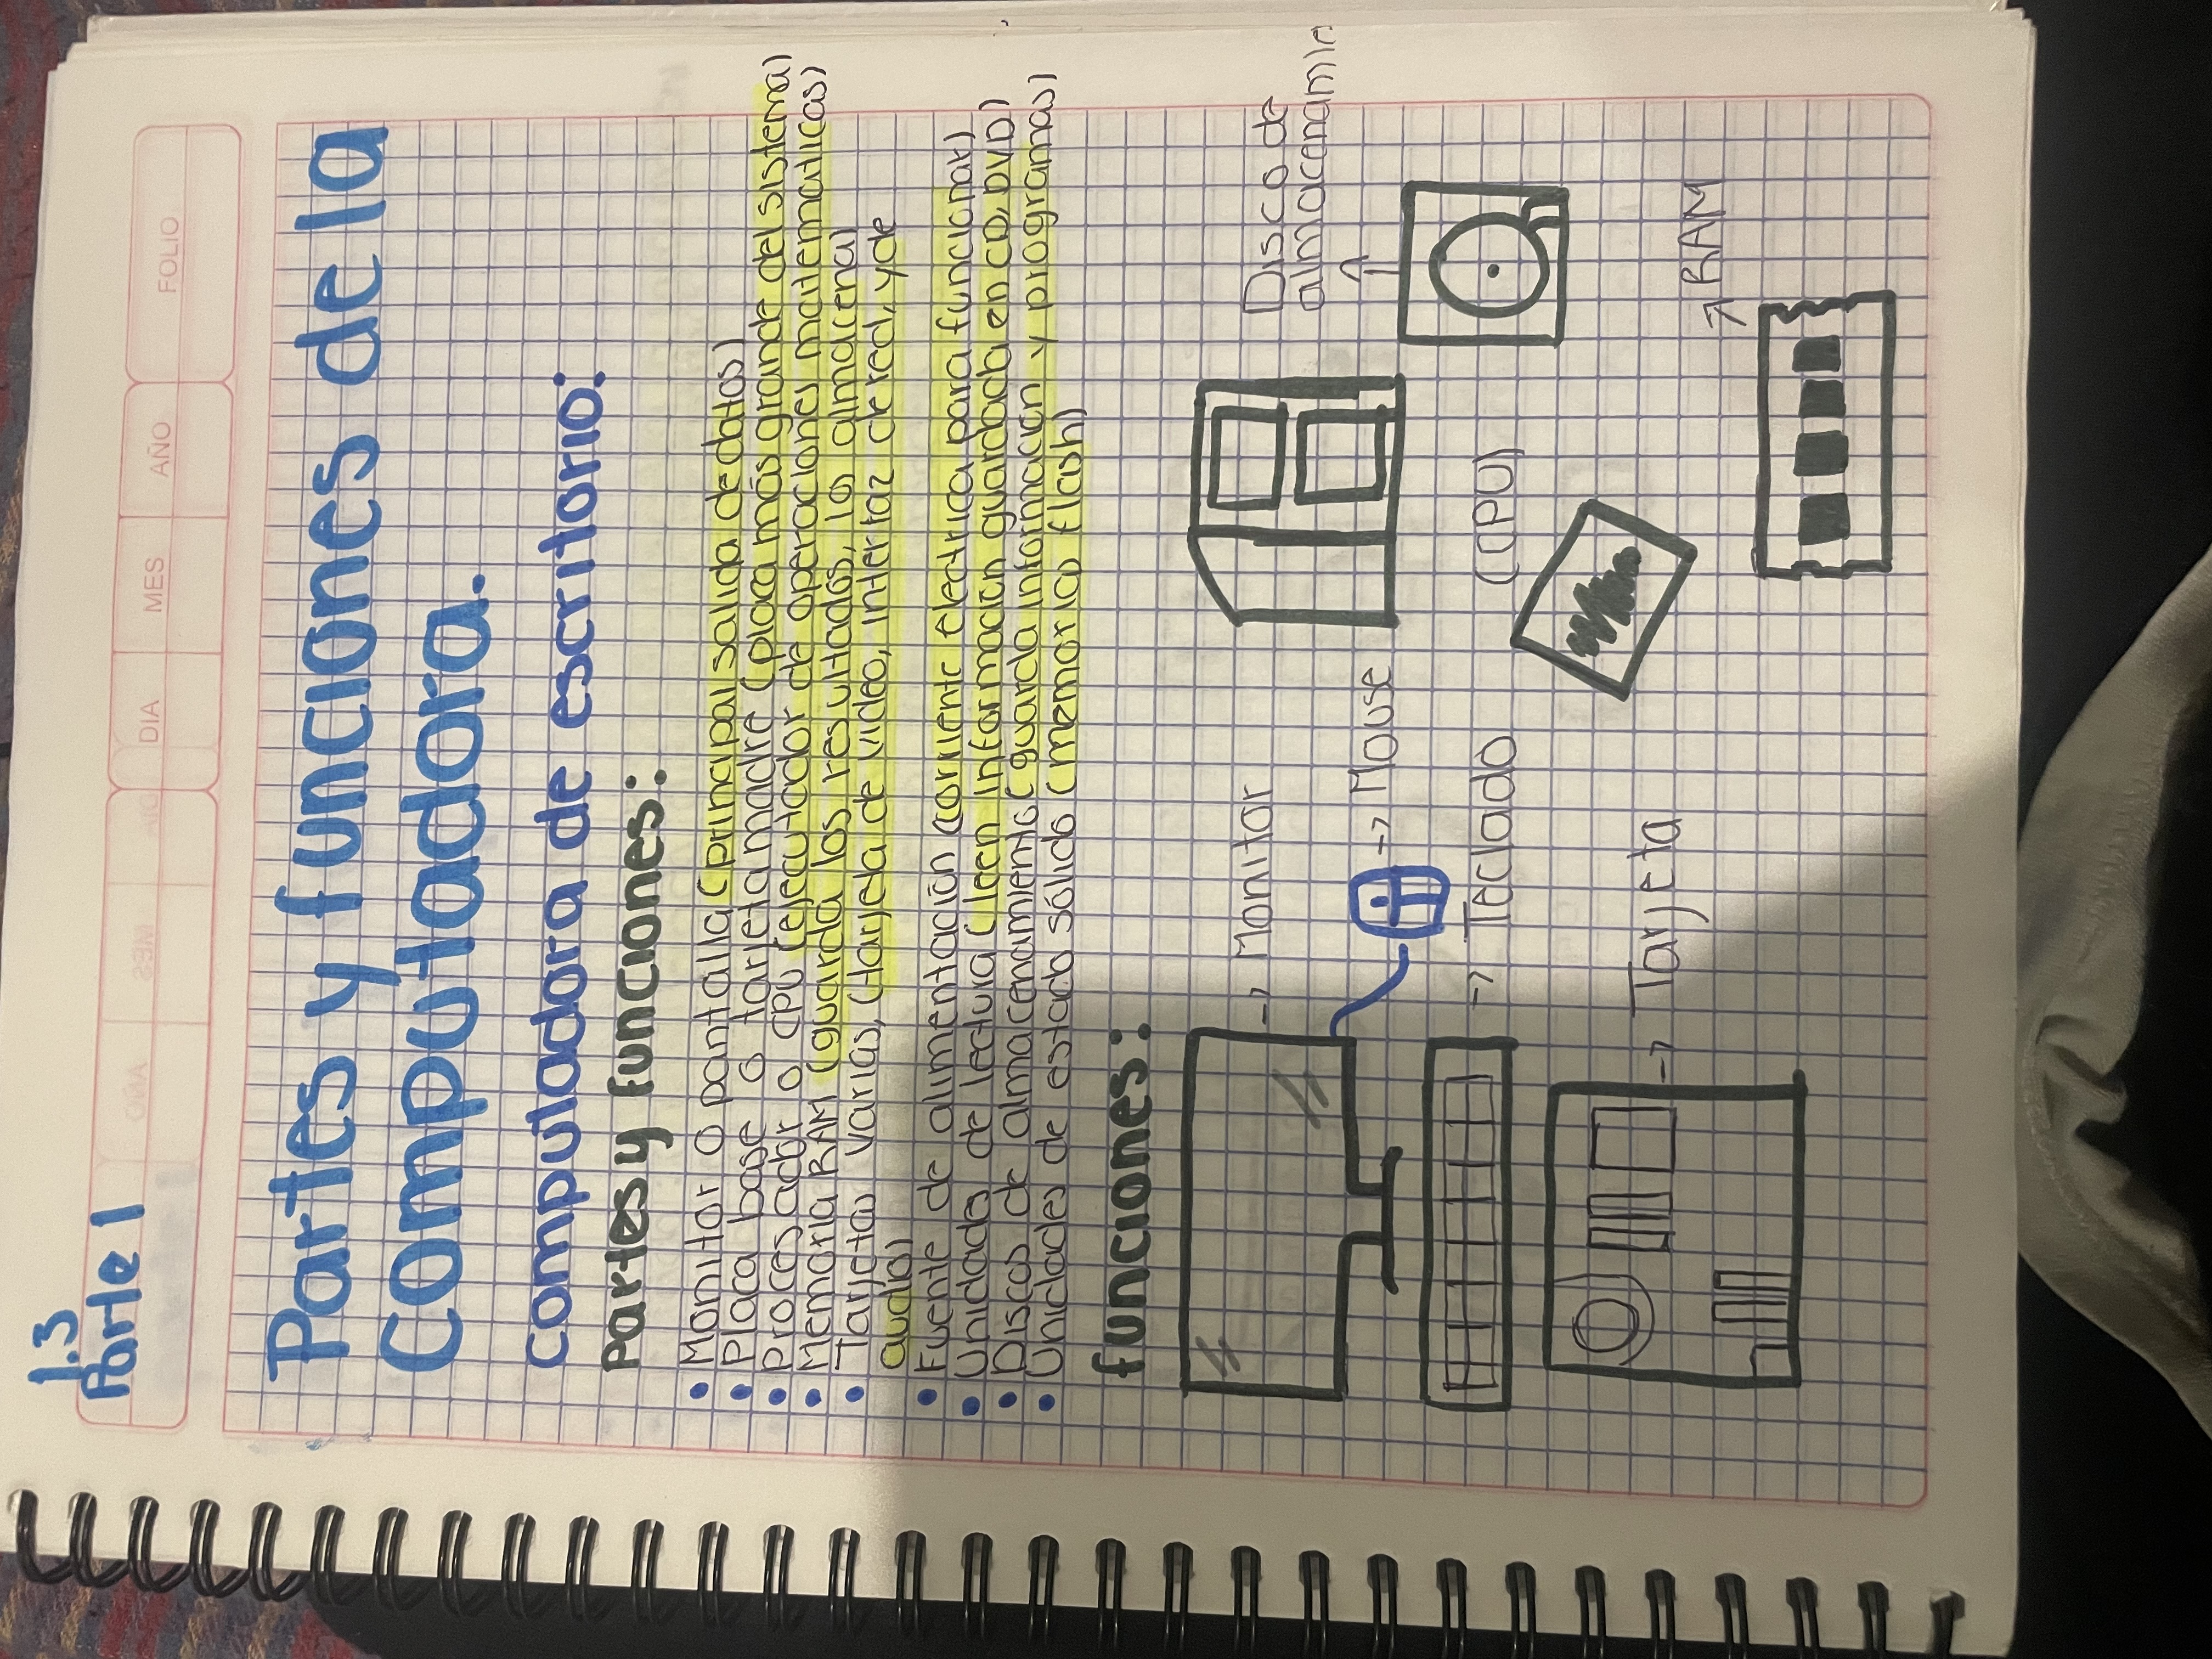 1.3
Parte 1
DIA MES AÑO FOLIO
Partes y funciones de la
computadora.
computadora de escritorio:
Partes y funciones:
• Monitor o pantalla (principal salida de datos)
• Placa base o tarjeta madre (placa más grande del sistema)
• Procesador o CPU (ejecutador de operaciones matematicas)
• Memoria RAM (guarda los resultados, los almacena)
• Tarjetas varias, (tarjeta de video, interfaz de red, y de
audio)
• Fuente de alimentación (corriente electrica para funcionar)
• Unidades de lectura (leen información guardada en CD, DVD)
• Discos de almacenamiento (guarda información y programas)
• Unidades de estado sólido (memorias flash)
funciones:
-> Monitor
Disco de
almacenamie
-> Mouse
-> Teclado
(CPU)
-> Tarjeta
RAM